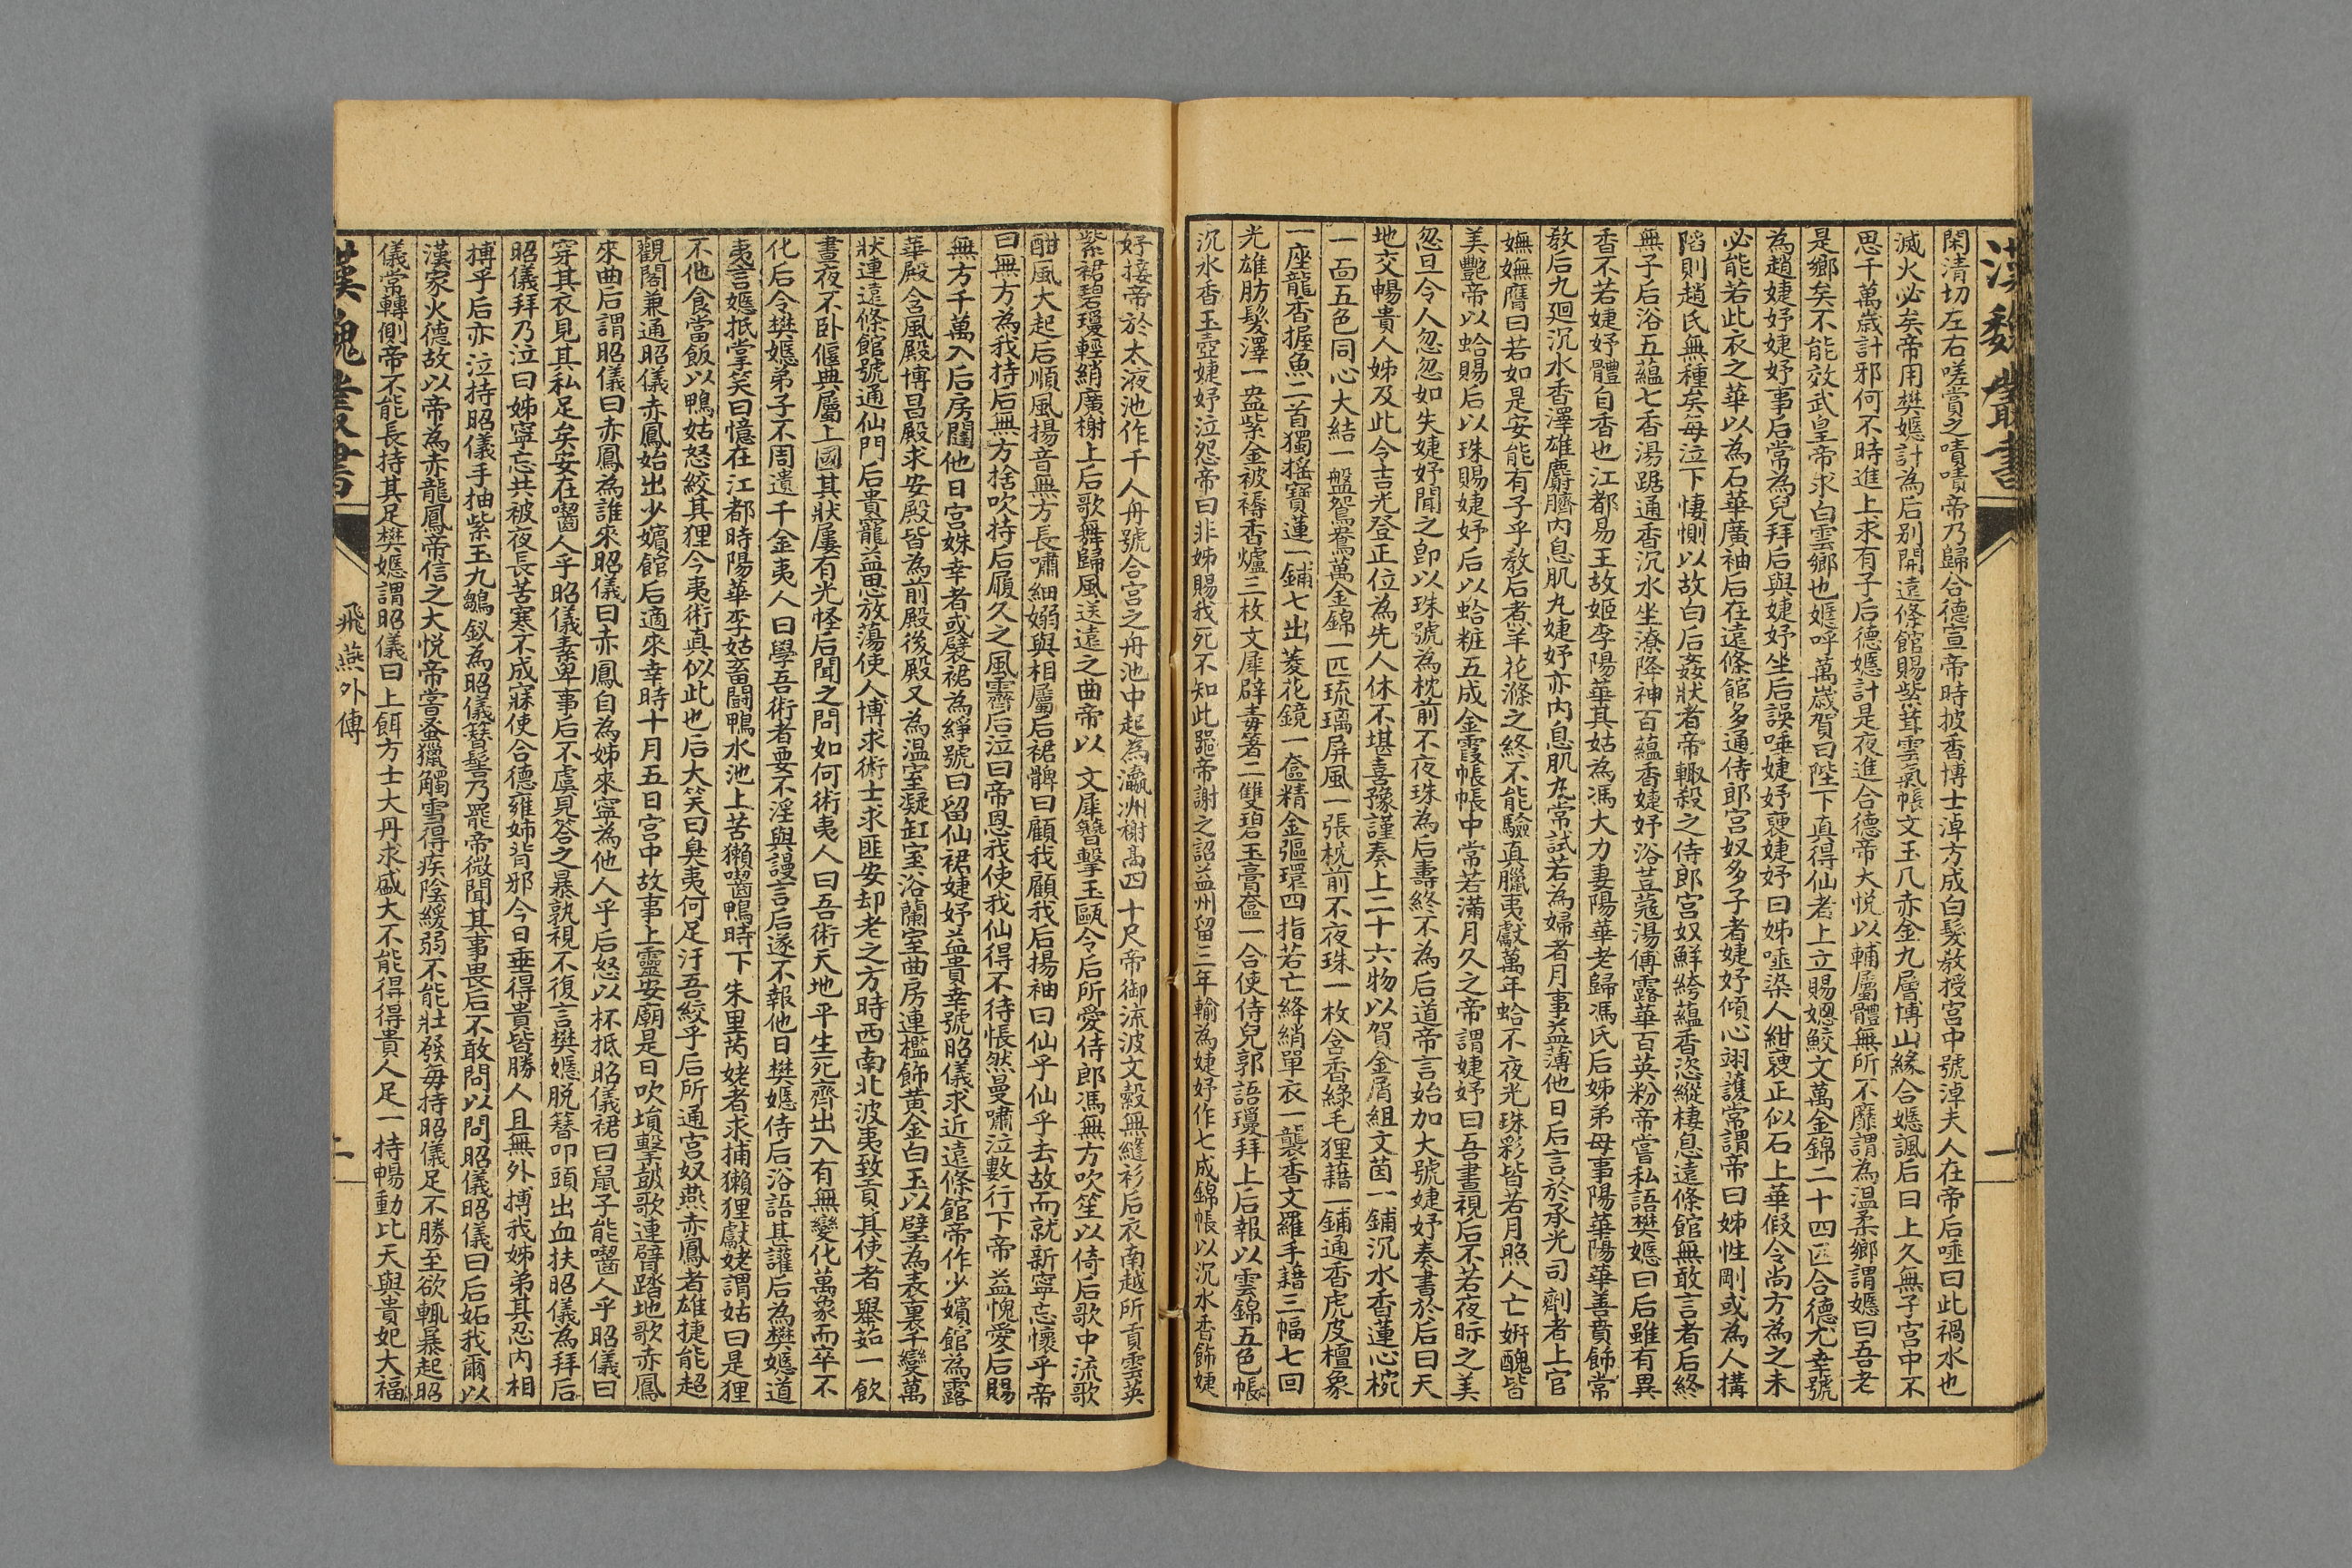 漢魏叢書
一
閑清切左右嗟賞之嘖嘖帝乃歸合德宣帝時披香博士淖方成白髮教授宮中號淖夫人在帝后唾曰此禍水也
滅火必矣帝用樊嫕計為后别開遠條館賜紫茸雲氣帳文玉几赤金九層博山緣合嫕諷后曰上久無子宮中不
思千萬歲計邪何不時進上求有子后德嫕計是夜進合德帝大悅以輔屬體無所不靡謂為温柔鄉謂嫕曰吾老
是鄉矣不能效武皇帝求白雲鄉也嫕呼萬歲賀曰陛下真得仙者上立賜嫕鮫文萬金錦二十四匹合德尤幸號
為趙婕妤婕妤事后常為兒拜后與婕妤坐后誤唾婕妤褎婕妤曰姊唾染人紺褎正似石上華假令尚方為之未
必能若此衣之華以為石華廣袖后在遠條館多通侍郎宮奴多子者婕妤傾心翊護常謂帝曰姊性剛或為人搆
陷則趙氏無種矣每泣下悽惻以故白后姦狀者帝輙殺之侍郎宮奴鮮絝蘊香恣縱棲息遠條館無敢言者后終
無子后浴五蘊七香湯踞通香沉水坐潦降神百蘊香婕妤浴荳蔻湯傅露華百英粉帝嘗私語樊嫕曰后雖有異
香不若婕妤體自香也江都易王故姬李陽華其姑為馮大力妻陽華老歸馮氏后姊弟母事陽華陽華善賁飾常
教后九廻沉水香澤雄麝臍內息肌丸婕妤亦內息肌丸常試若為婦者月事益薄他日后言於承光司劑者上官
嫵嫵膺曰若如是安能有子乎教后煮羊花滌之終不能驗真臘夷獻萬年蛤不夜光珠彩皆若月照人亡妍醜皆
美艷帝以蛤賜后以珠賜婕妤后以蛤粧五成金霞帳帳中常若滿月久之帝謂婕妤曰吾晝視后不若夜眎之美
忽旦令人忽忽如失婕妤聞之卽以珠號為枕前不夜珠為后壽終不為后道帝言始加大號婕妤奏書於后曰天
地交暢貴人姊及此令吉光登正位為先人休不堪喜豫謹奏上二十六物以賀金屑組文茵一鋪沉水香蓮心椀
一面五色同心大結一盤鴛鴦萬金錦一匹琉璃屏風一張枕前不夜珠一枚含香綠毛狸藉一鋪通香虎皮檀象
一座龍香握魚二首獨摇寶蓮一鋪七出菱花鏡一奩精金彄環四指若亡絳綃單衣一襲香文羅手藉三幅七回
光雄肪髮澤一盎紫金被褥香爐三枚文犀辟毒箸二雙碧玉膏奩一合使侍兒郭語瓊拜上后報以雲錦五色帳
沉水香玉壺婕妤泣怨帝曰非姊賜我死不知此噐帝謝之詔益州留三年輸為婕妤作七成錦帳以沉水香飾婕
妤接帝於太液池作千人舟號合宮之舟池中起為瀛洲榭高四十尺帝御流波文縠無縫衫后衣南越所貢雲英
紫裙碧瓊輕綃廣榭上后歌舞歸風送遠之曲帝以文犀簪擊玉甌令后所愛侍郎馮無方吹笙以倚后歌中流歌
酣風大起后順風揚音無方長嘯細嫋與相屬后裙髀曰顧我顧我后揚袖曰仙乎仙乎去故而就新寧忘懷乎帝
曰無方為我持后無方捨吹持后履久之風霽后泣曰帝恩我使我仙得不待悵然曼嘯泣數行下帝益愧愛后賜
無方千萬入后房闥他日宮姝幸者或襞裙為縐號曰留仙裙婕妤益貴幸號昭儀求近遠條館帝作少嬪館為露
華殿含風殿博昌殿求安殿皆為前殿後殿又為温室凝缸室浴蘭室曲房連檻飾黄金白玉以璧為表裏千變萬
狀連遠條館號通仙門后貴寵益思放蕩使人博求術士求匪安却老之方時西南北波夷致貢其使者舉茹一飲
晝夜不卧偃典屬上國其狀屢有光怪后聞之問如何術夷人曰吾術天地平生死齊出入有無變化萬象而卒不
化后令樊嫕弟子不周遺千金夷人曰學吾術者要不淫與謾言后遂不報他日樊嫕侍后浴語甚讙后為樊嫕道
夷言嫕抵掌笑曰憶在江都時陽華李姑畜鬭鴨水池上苦獺嚙鴨時下朱里芮姥者求捕獺狸獻姥謂姑曰是狸
不他食當飯以鴨姑怒絞其狸今夷術真似此也后大笑曰臭夷何足汙吾絞乎后所通宮奴燕赤鳳者雄捷能超
觀閣兼通昭儀赤鳳始出少嬪館后適來幸時十月五日宮中故事上靈安廟是日吹塤擊鼓歌連臂踏地歌赤鳳
來曲后謂昭儀曰赤鳳為誰來昭儀曰赤鳳自為姊來寧為他人乎后怒以杯抵昭儀裙曰鼠子能嚙人乎昭儀曰
穿其衣見其私足矣安在嚙人乎昭儀素卑事后不虞見答之暴孰視不復言樊嫕脱簪叩頭出血扶昭儀為拜后
昭儀拜乃泣曰姊寧忘共被夜長苦寒不成寐使合德雍姊背邪今日垂得貴皆勝人且無外搏我姊弟其忍內相
搏乎后亦泣持昭儀手抽紫玉九鶵釵為昭儀簪髻乃罷帝微聞其事畏后不敢問以問昭儀昭儀曰后妬我爾以
漢家火德故以帝為赤龍鳳帝信之大悦帝嘗蚤獵觸雪得疾陰緩弱不能壯發每持昭儀足不勝至欲輒暴起昭
儀常轉側帝不能長持其足樊嫕謂昭儀曰上餌方士大丹求盛大不能得得貴人足一持暢動此天與貴妃大福
漢魏叢書
飛燕外傳
二